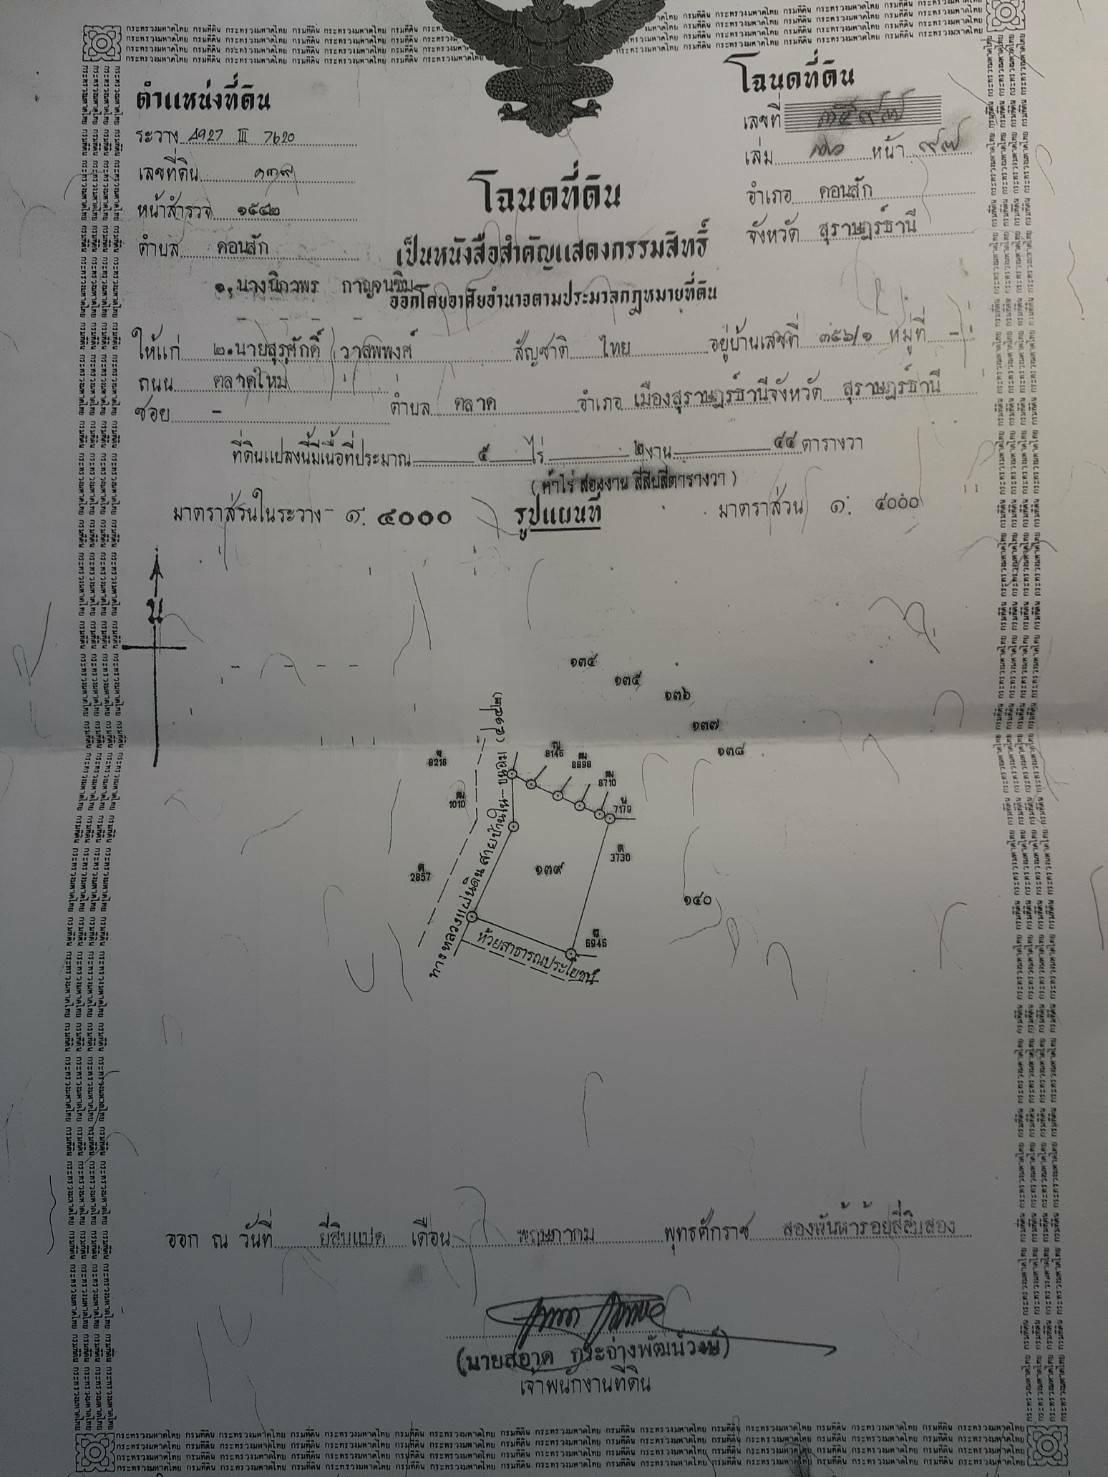 โฉนดที่ดิน
ตำแหน่งที่ดิน
เลขที่
ระวาง 4927 III 7620
เล่ม หน้า ๙๗
เลขที่ดิน ๑๓๙
อำเภอ ดอนสัก
หน้าสำรวจ ๑๕๔๒
จังหวัด สุราษฎร์ธานี
ตำบล ดอนสัก
โฉนดที่ดิน
เป็นหนังสือสำคัญแสดงกรรมสิทธิ์
ออกโดยอาศัยอำนาจตามประมวลกฎหมายที่ดิน
๑. กาญจนขิม
ให้แก่ ๒.นายสุรศักดิ์ วาสพพงศ์ สัญชาติ ไทย อยู่บ้านเลขที่ ๓๕๖/๑ หมู่ที่ -
ถนน ตลาดใหม่
ซอย - ตำบล ตลาด อำเภอ เมืองสุราษฎร์ธานี จังหวัด สุราษฎร์ธานี
ที่ดินแปลงนี้มีเนื้อที่ประมาณ ๕ ไร่ ๒ งาน ๔๔ ตารางวา
(ห้าไร่ สองงาน สี่สิบสี่ตารางวา)
มาตราส่วนในระวาง ๑: ๔๐๐๐ รูปแผนที่ มาตราส่วน ๑: ๔๐๐๐
น
๑๓๔
๑๓๕
๑๓๖
๑๓๗
๑๓๘
8216
8145
8898
8710
1010
7179
3730
2857
๑๓๙
๑๔๐
6946
ทางหลวงแผ่นดิน สายบ้านใน-ขนอม
ห้วยสาธารณประโยชน์
ออก ณ วันที่ ยี่สิบแปด เดือน พฤษภาคม พุทธศักราช สองพันห้าร้อยสี่สิบสอง
(นายสอาด กระจ่างพัฒน์วงษ์)
เจ้าพนักงานที่ดิน
กระทรวงมหาดไทย กรมที่ดิน